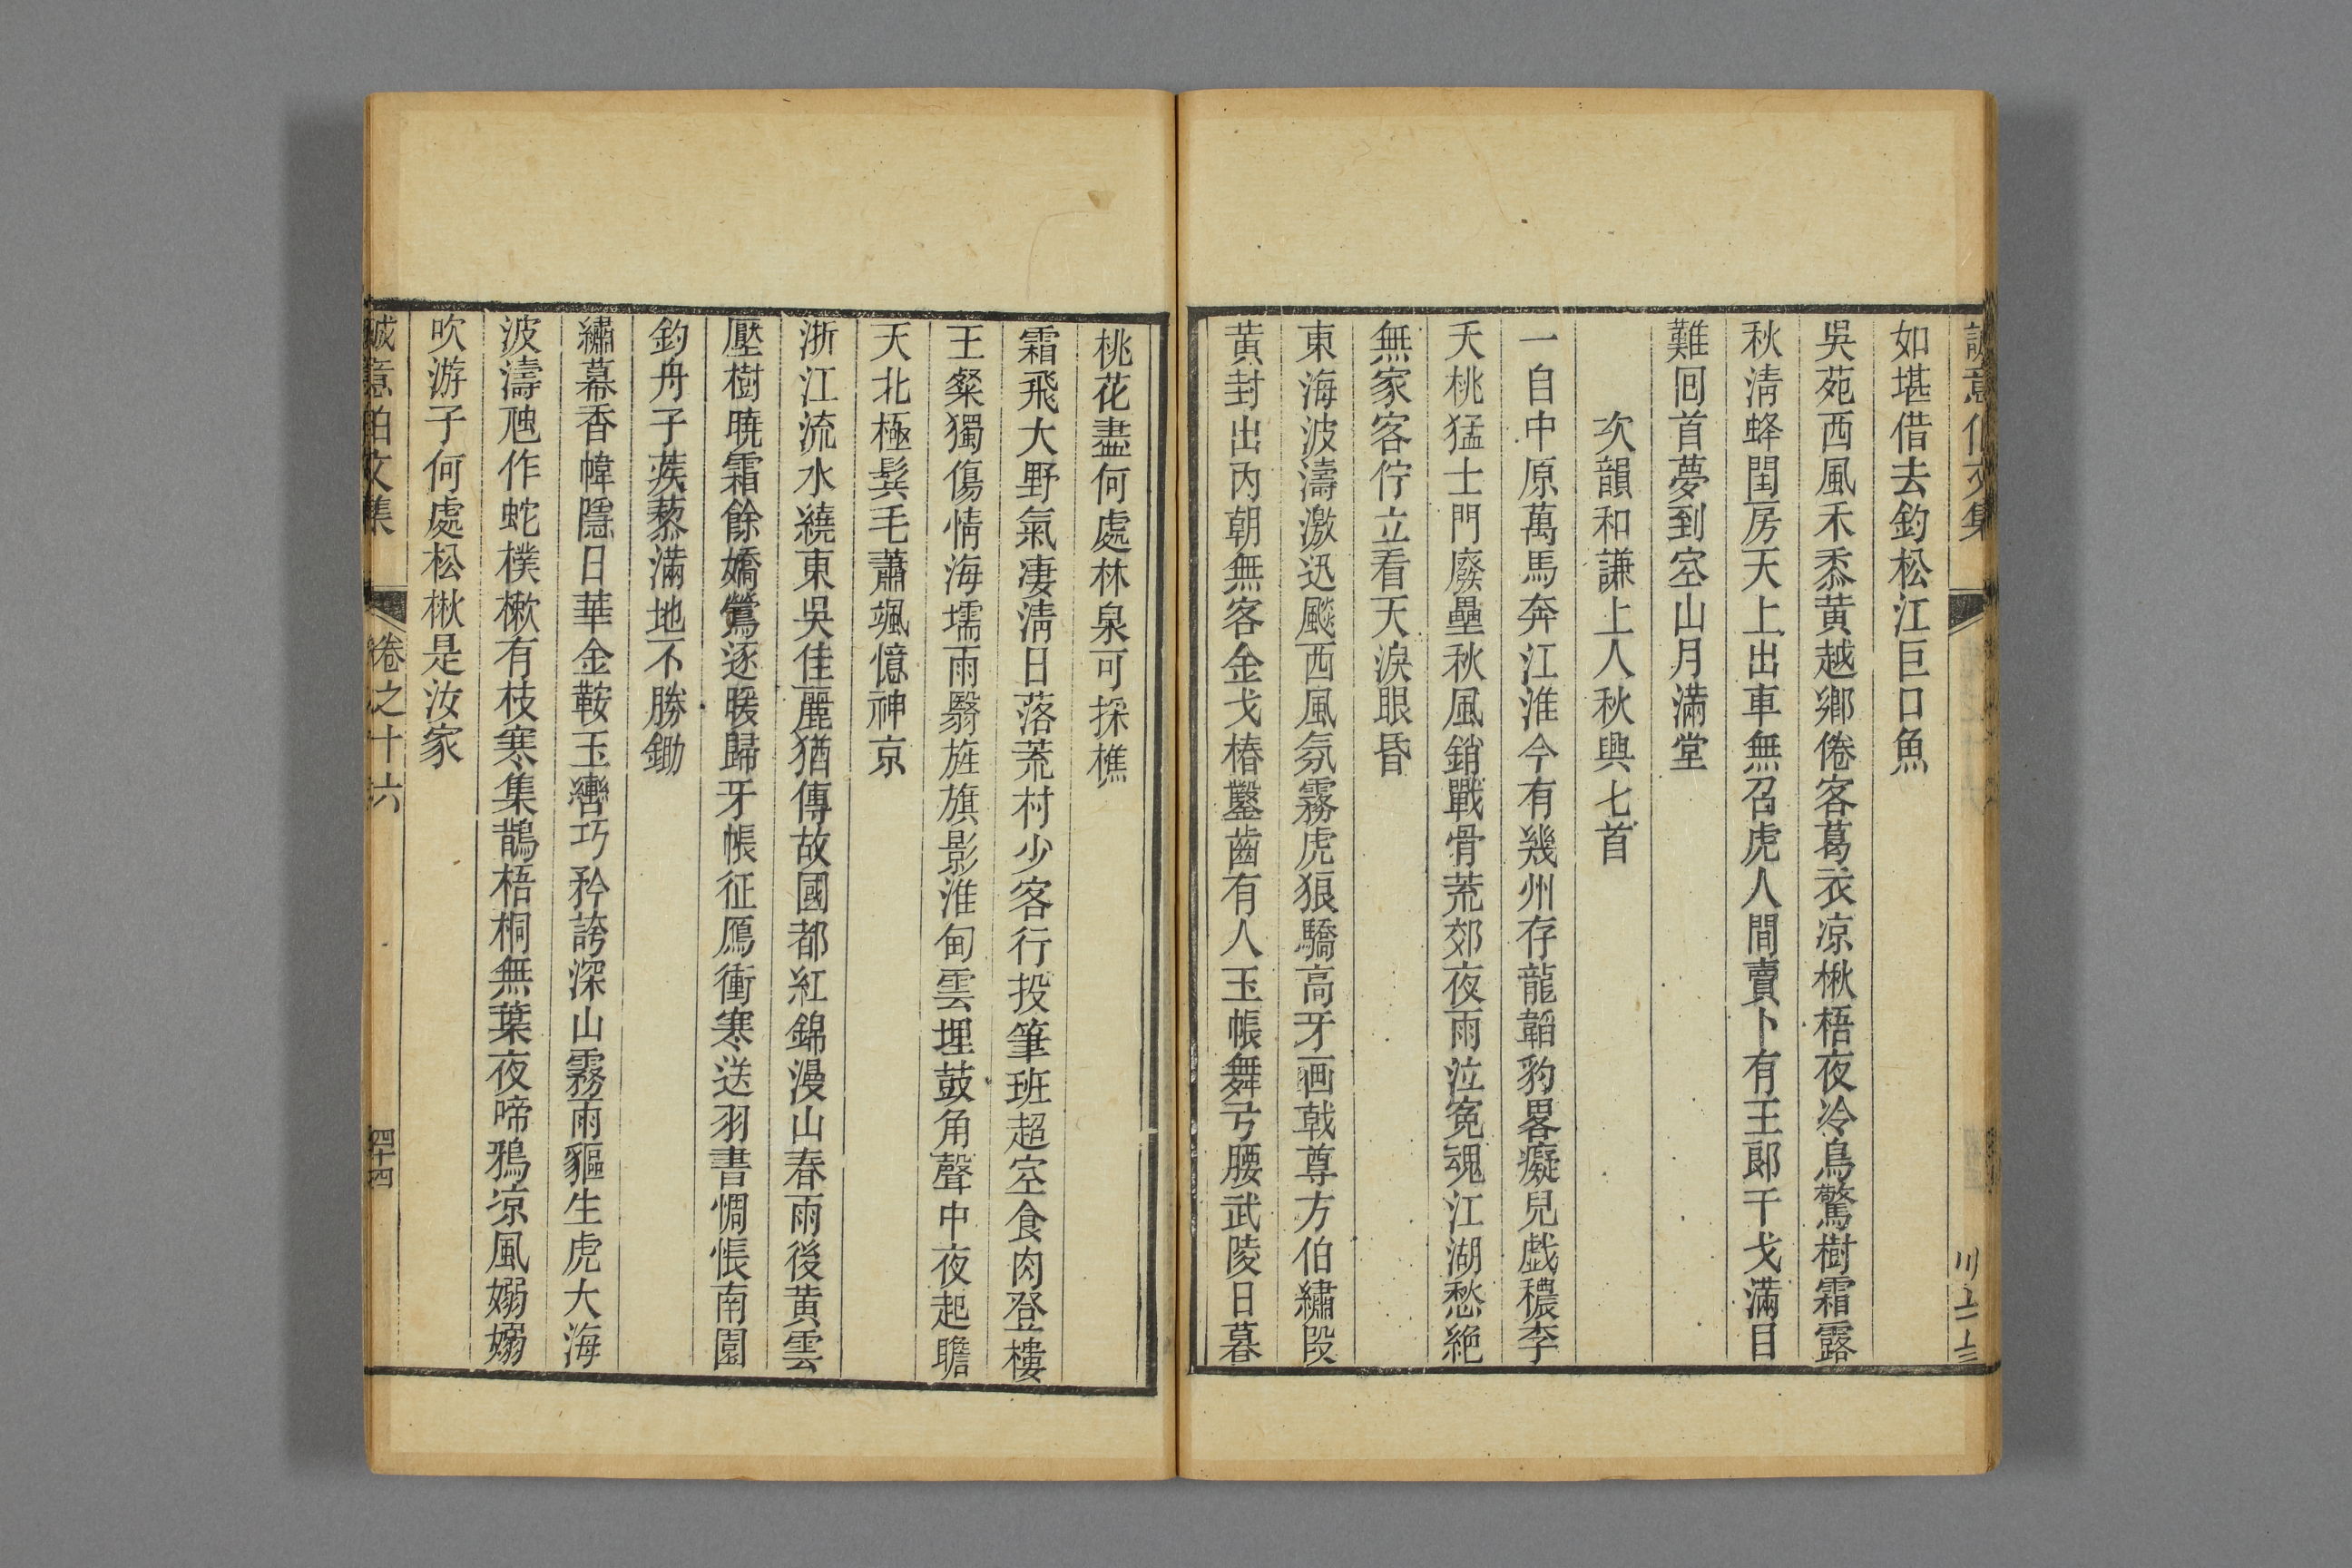 誠意伯文集
如堪借去釣松江巨口魚
吳苑西風禾黍黃越鄉倦客葛衣凉楸梧夜冷鳥驚樹霜露
秋淸蜂閏房天上出車無召虎人間賣卜有王郎干戈滿目
難囘首夢到空山月滿堂
次韻和謙上人秋興七首
一自中原萬馬奔江淮今有幾州存龍韜豹畧癡兒戯穠李
夭桃猛士門廢壘秋風銷戰骨荒郊夜雨泣寃魂江湖愁絶
無家客佇立看天淚眼昏
東海波濤激迅颷西風氛霧虎狼驕高牙画戟尊方伯繡段
黃封出內朝無客金戈椿鑿齒有人玉帳舞弓腰武陵日暮
桃花盡何處林泉可採樵
霜飛大野氣凄淸日落荒村少客行投筆班超空食肉登樓
王粲獨傷情海壖雨翳旌旗影淮甸雲埋鼓角聲中夜起瞻
天北極鬓毛蕭颯憶神京
浙江流水繞東吳佳麗猶傳故國都紅錦漫山春雨後黃雲
壓樹曉霜餘嬌鶯逐暖歸牙帳征鴈衝寒送羽書惆悵南園
釣舟子蒺藜滿地不勝鋤
繡幕香幃隱日華金鞍玉轡巧矜誇深山霧雨貙生虎大海
波濤虺作蛇樸樕有枝寒集鵲梧桐無葉夜啼鴉凉風嫋嫋
吹游子何處松楸是汝家
誠意伯文集
卷之十六
四十四